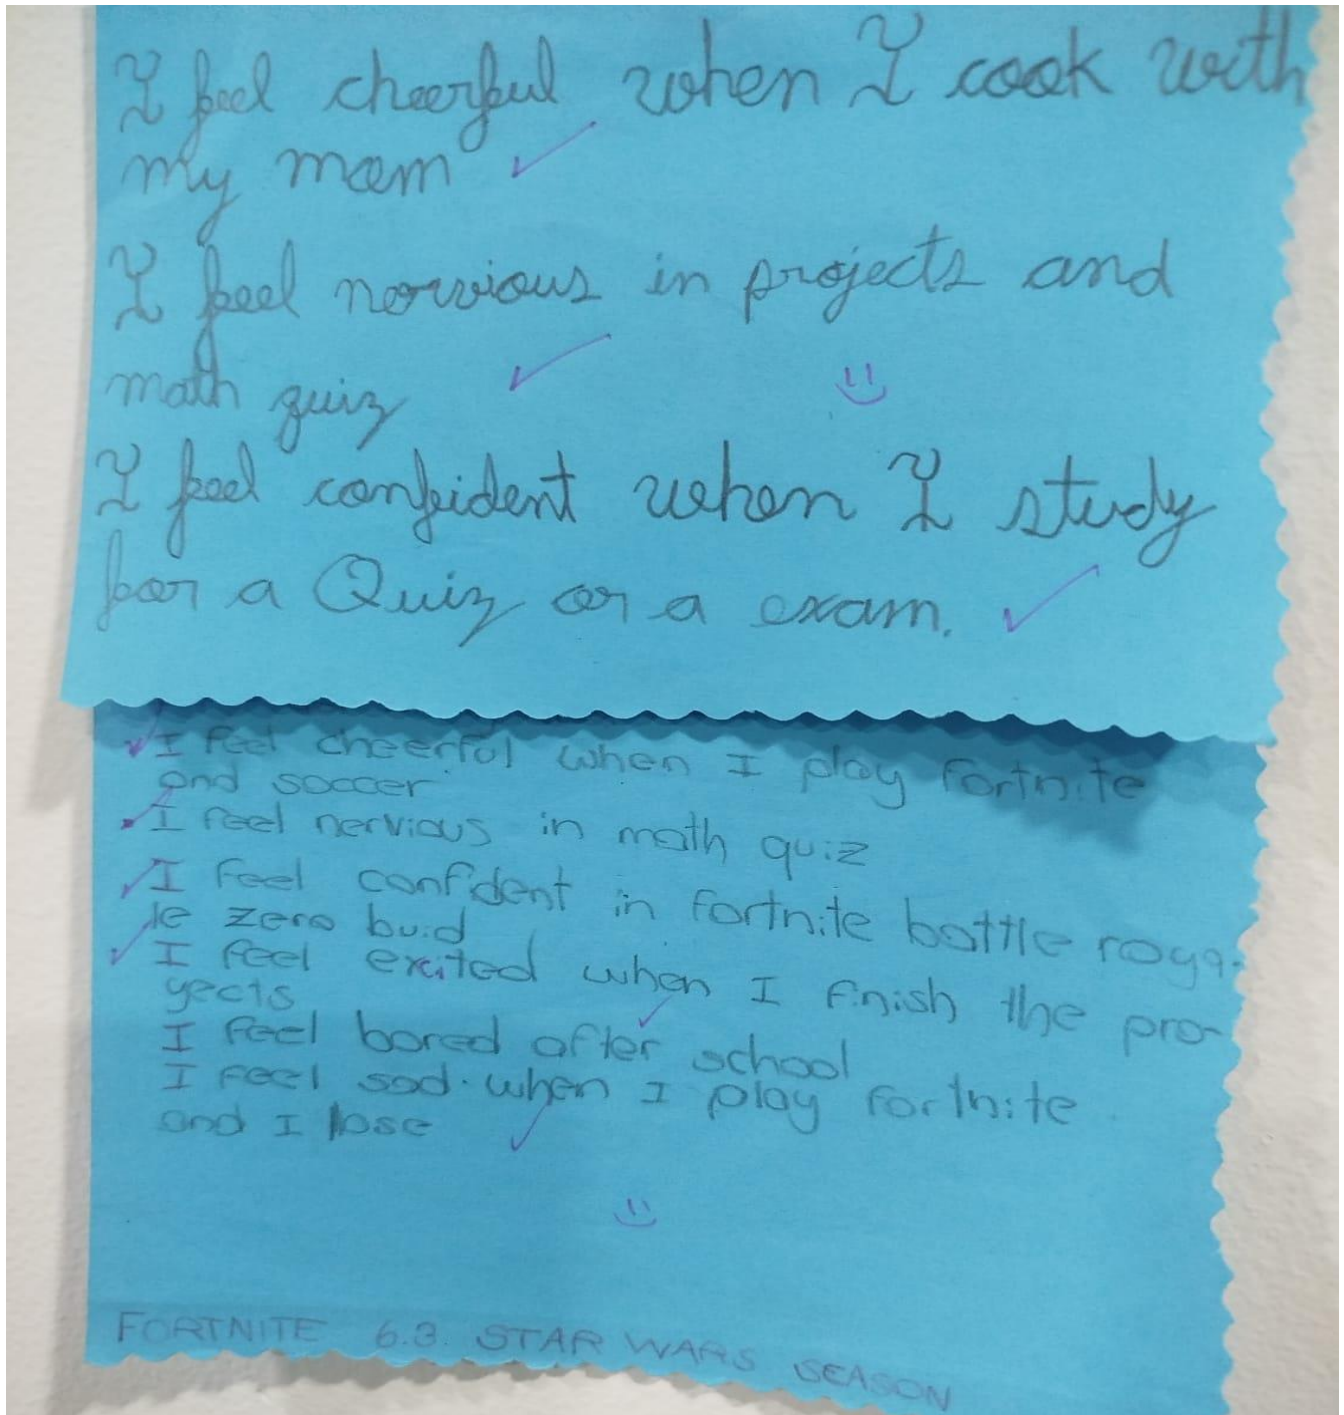 I feel cheerful when I cook with
my mom
I feel norvious in projects and
math quiz
I feel confident when I study
for a Quiz or a exam.
I feel cheerful when I play Fortnite
and soccer
I feel nervious in math quiz
I feel confident in fortnite battle roya-
le zero buid
I feel excited when I finish the pro-
yects
I feel bored after school
I feel sad when I play fortnite
and I lose
FORTNITE 6.3. STAR WARS SEASON